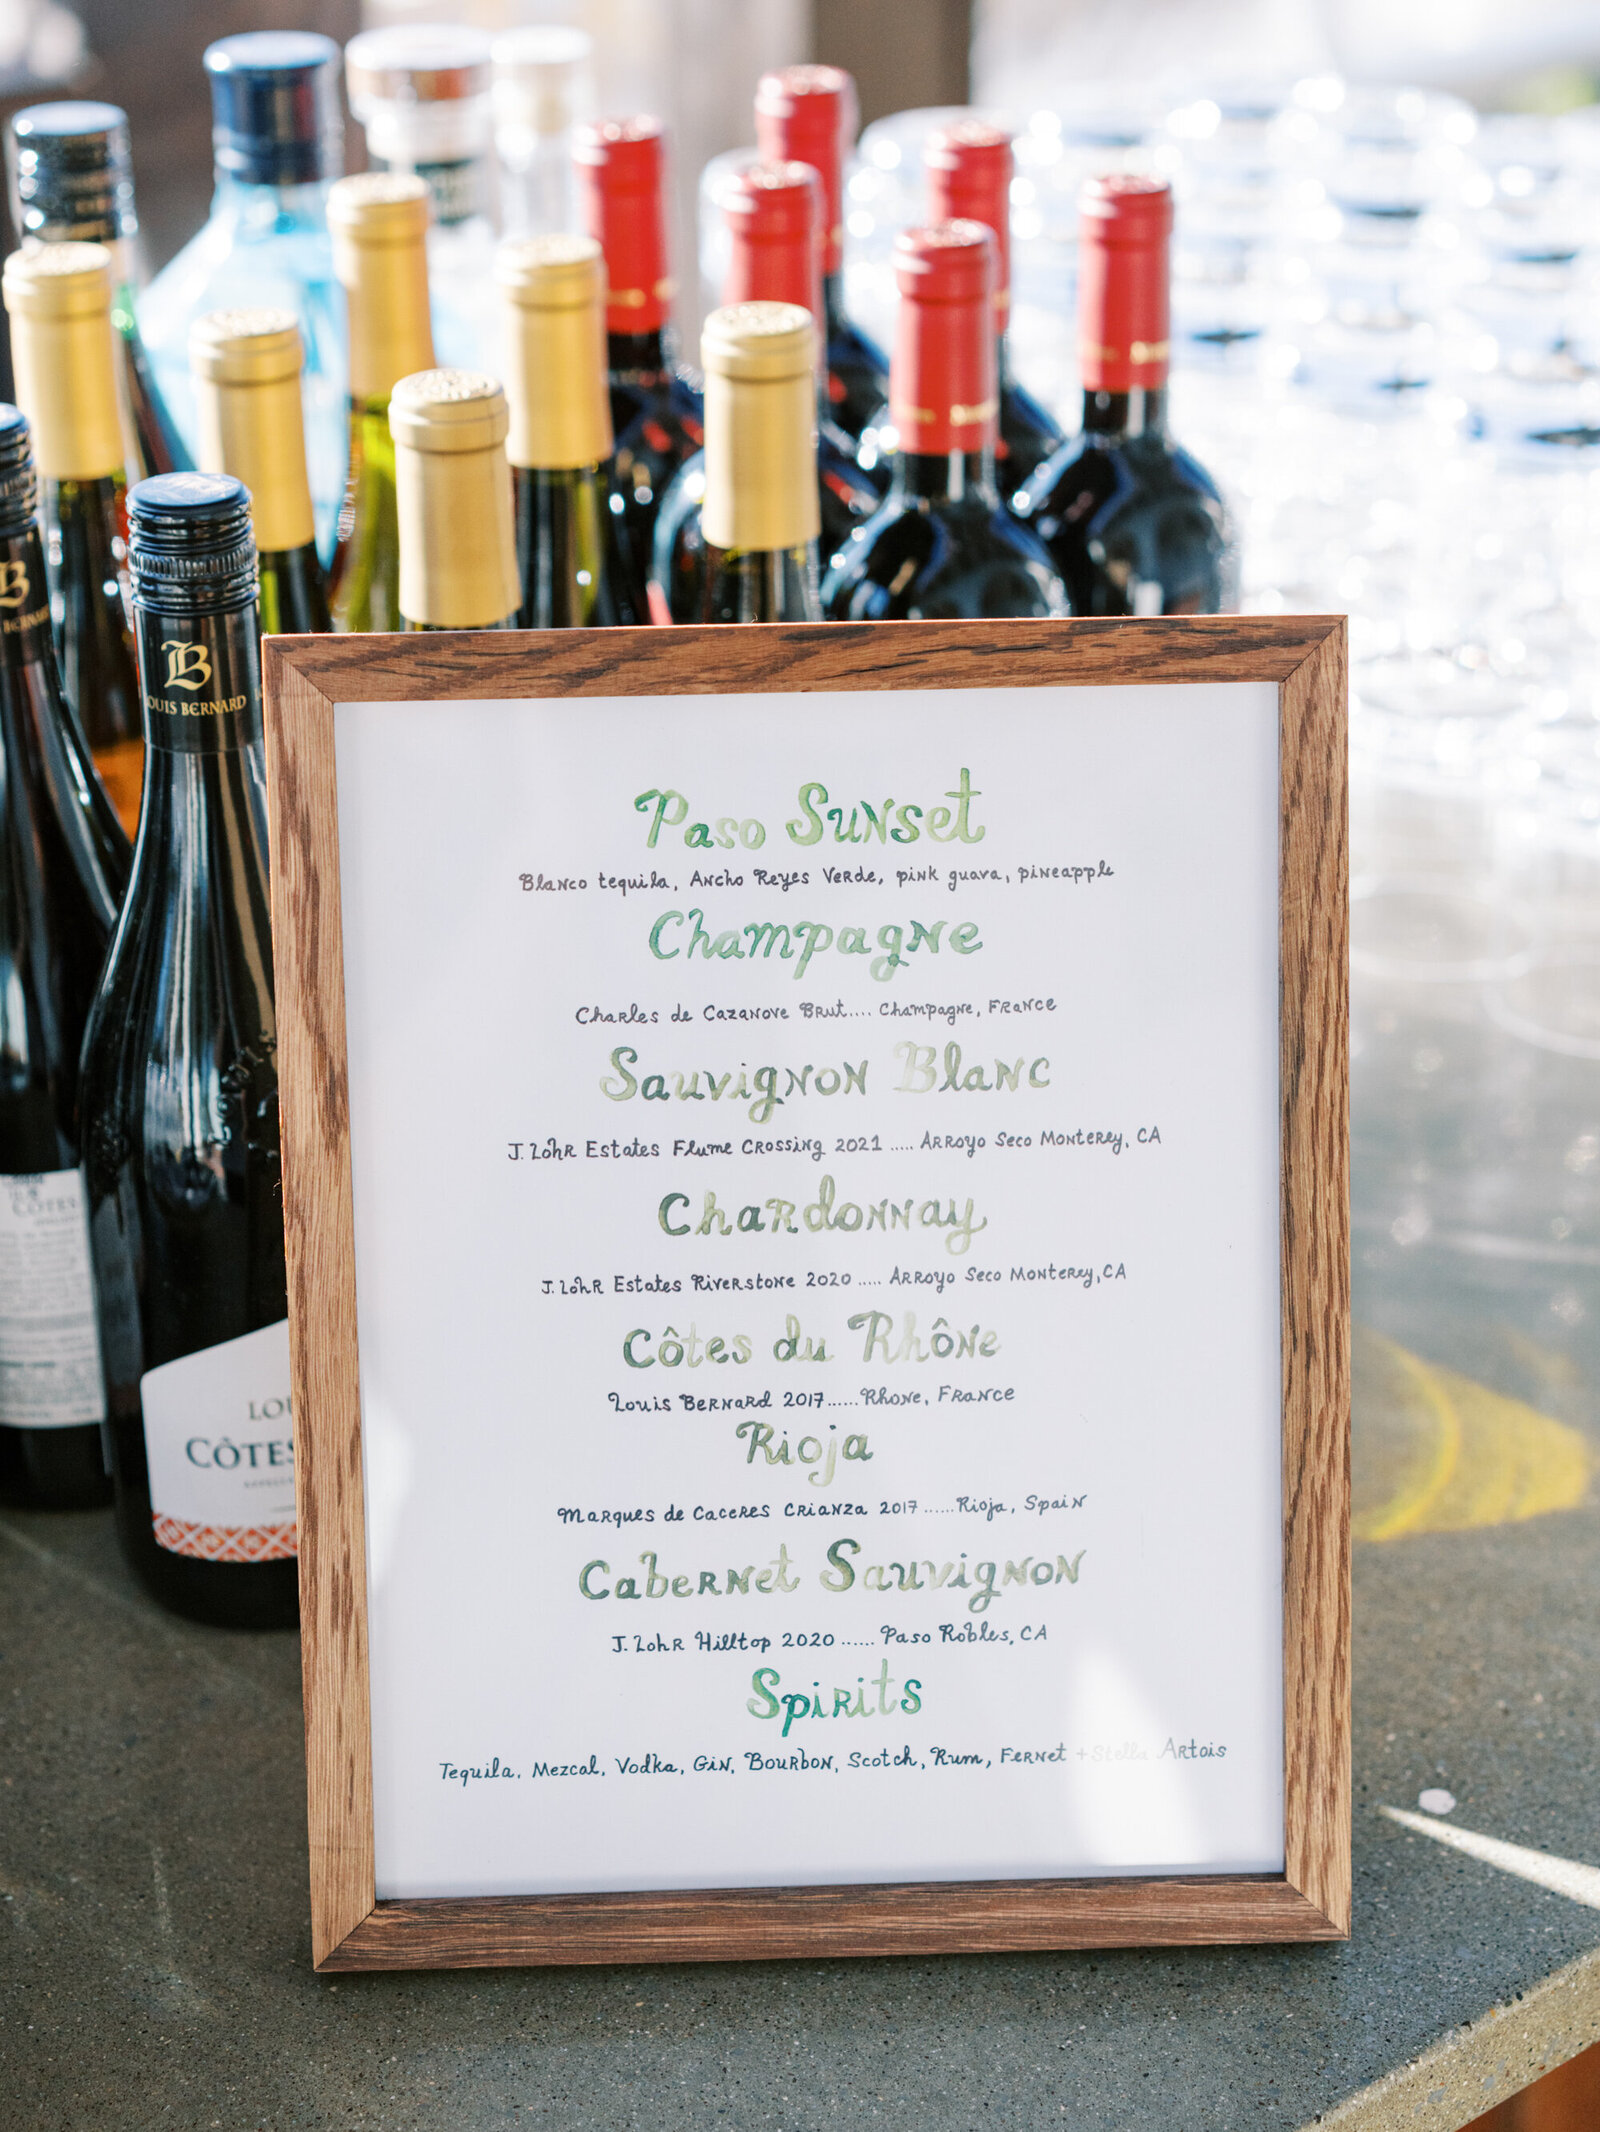 B
BERNARD
B
OUIS BERNARD
CÔTES
LOU
CÔTES
Paso Sunset
Blanco tequila, Ancho Reyes Verde, pink guava, pineapple
Champagne
Charles de Cazanove Brut.... Champagne, France
Sauvignon Blanc
J. Lohr Estates Flume Crossing 2021 ..... Arroyo Seco Monterey, CA
Chardonnay
J. Lohr Estates Riverstone 2020 ..... Arroyo Seco Monterey, CA
Côtes du Rhône
Louis Bernard 2017......Rhone, France
Rioja
Marques de Caceres Crianza 2017 ......Rioja, Spain
Cabernet Sauvignon
J. Lohr Hilltop 2020 ...... Paso Robles, CA
Spirits
Tequila, Mezcal, Vodka, Gin, Bourbon, Scotch, Rum, Fernet + Stella Artois